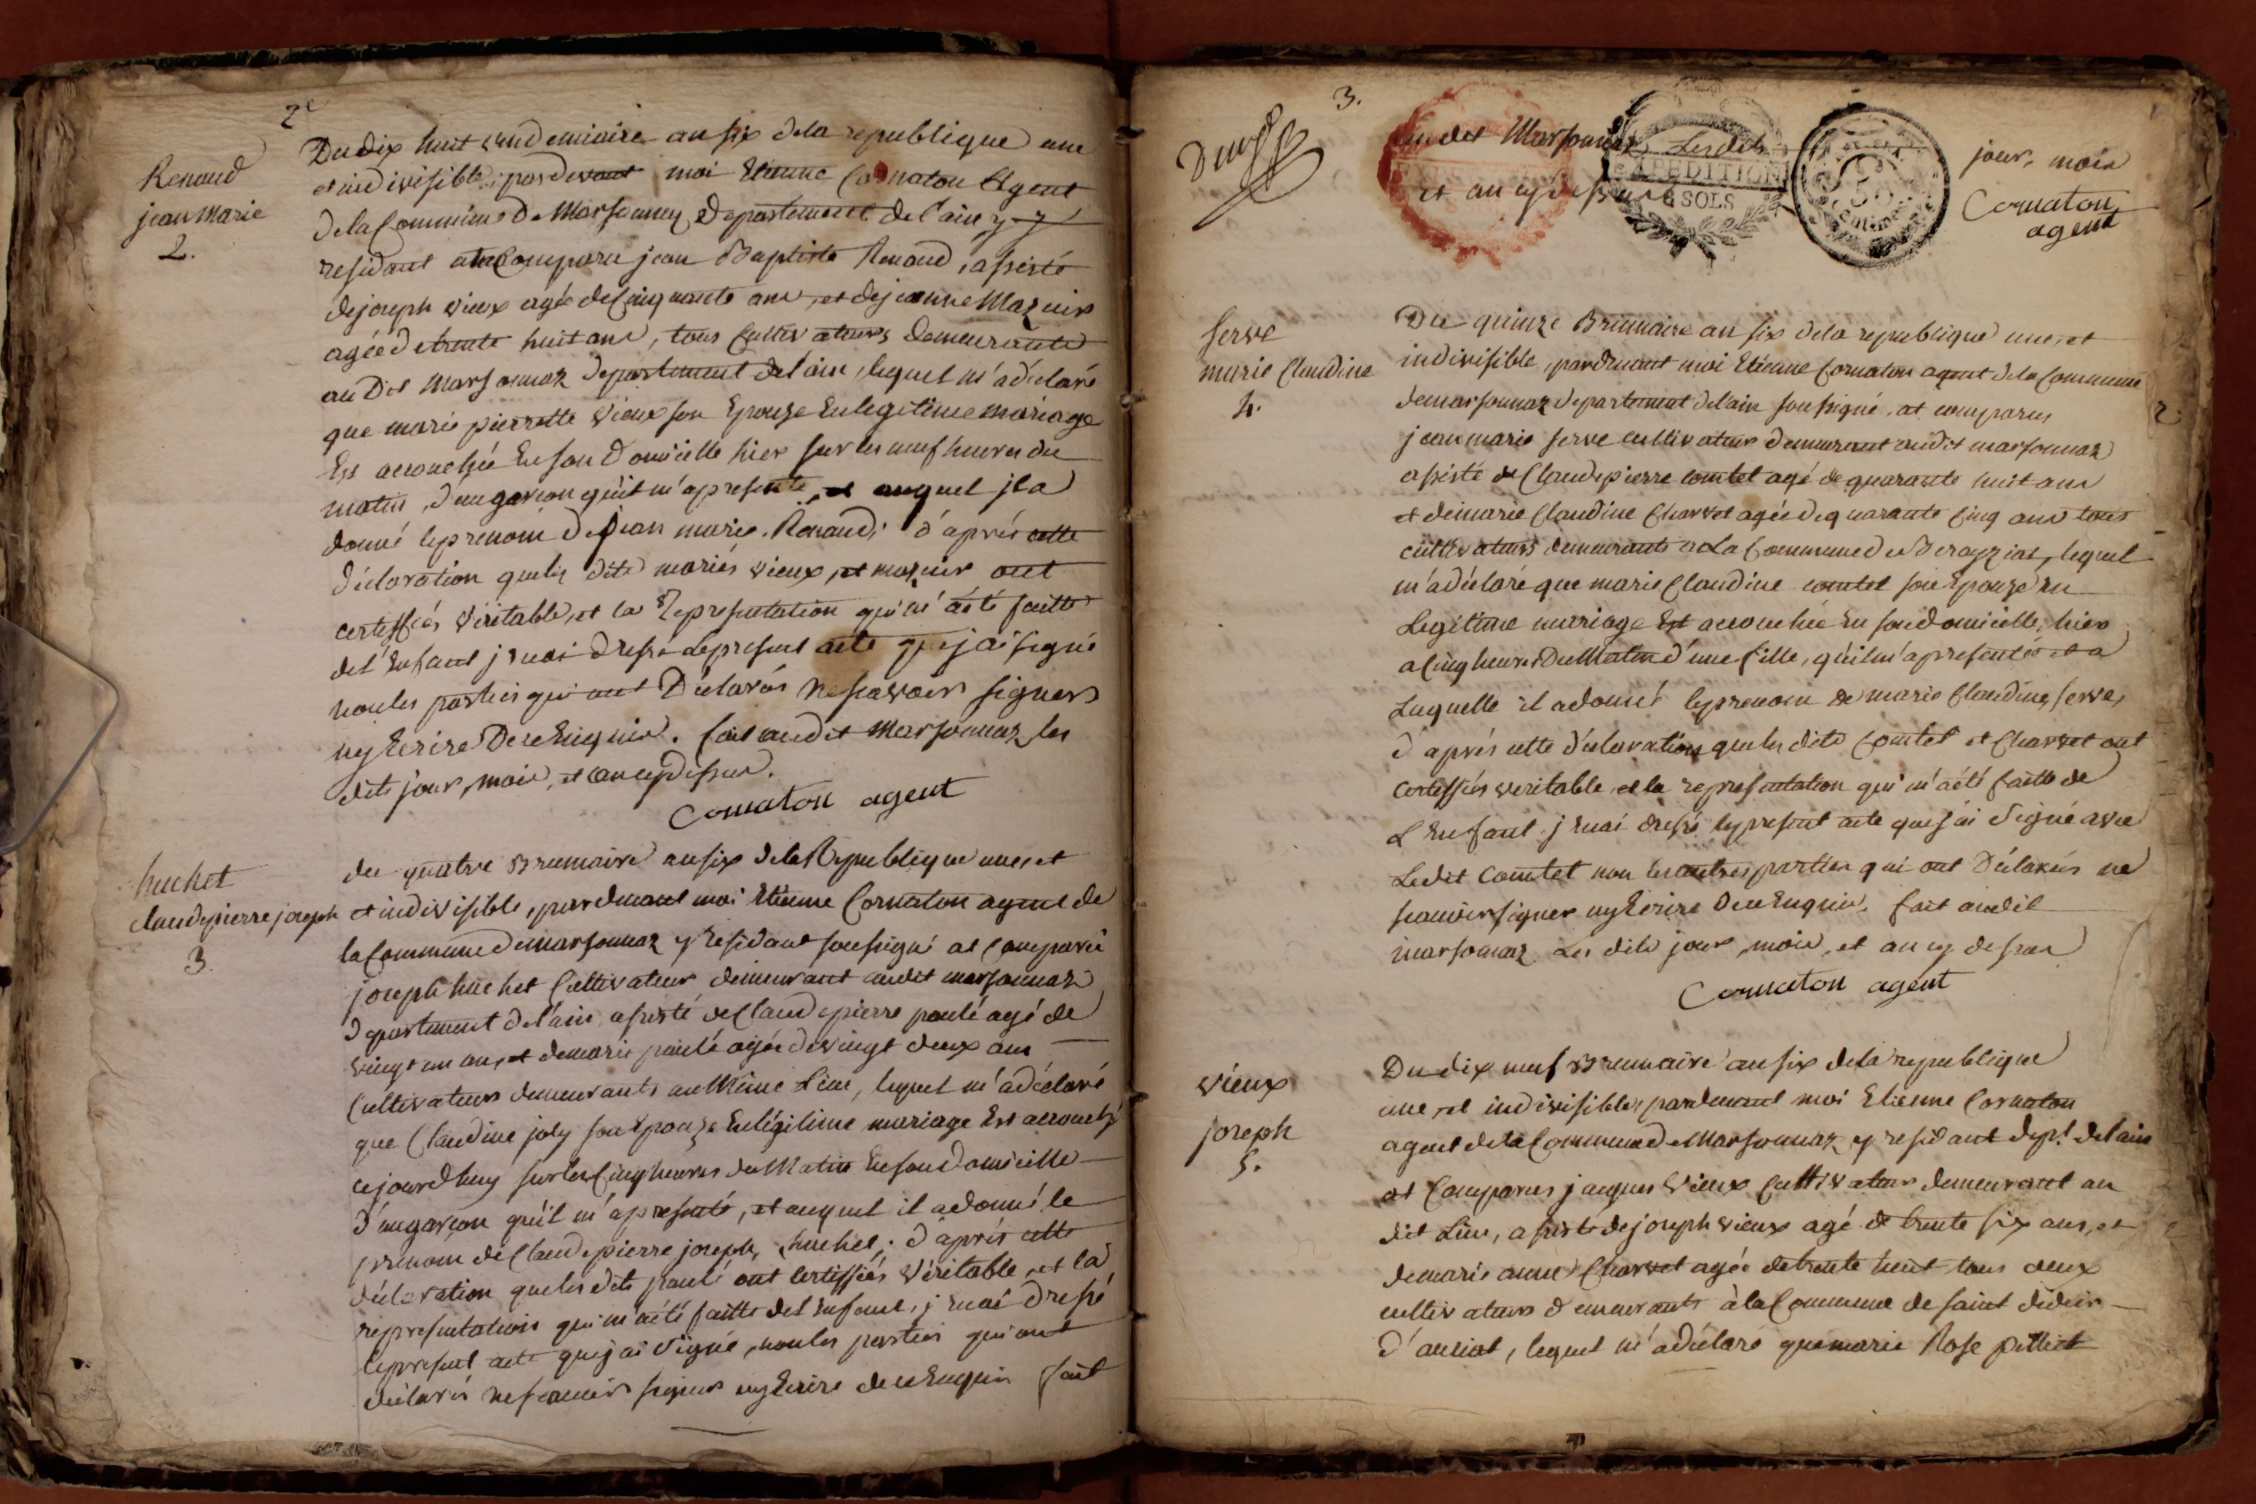 2e
Renaud
jean Marie
2.
Du dix huit vendemiaire an six dela republique une
et indivisible, pardevant moi Etienne Cornaton Agent
dela Commune de Marsonnaz departement de l'ain y
residant at Comparu jean Baptiste Renaud, assisté
de joseph vieux agé de Cinquante ans, et de jeanne Mazuir
agée de trente huit ans, tous Cultivateurs demeurants
au dit Marsonnaz departement de lain, lequel m'a déclaré
que marie pierrette vieux son Epouze En legitime mariage
Est accouchée En son Domicille hier sur les neuf heures du
matin, d'un garcon qu'il m'a presenté, et auquel jl a
donné le prenom de jean marie Renaud; d'après cette
déclaration que les dits mariés vieux, et mazuir ont
certiffiés véritable, et la Representation qui m'a été faitte
de l'Enfant j'enai dressé le present acte que j'ai signé
non les parties qui ont Déclarés ne scavoir signer
ny Ecrire De ce Enquis. fait au dit Marsonnaz les
dits jour, mois, et an cy dessus.
Cornaton agent
huchet
claude pierre joseph
3.
du quatre Brumaire an six dela Republique une et
et indivisible, pardevant moi Etienne Cornaton agent de
la Commune de marsonnaz y residant soussigné at Comparu
joseph huchet Cultivateur demeurant audit marsonnaz
departement de l'ain assisté de Claude pierre paulé agé de
vingt un ans, et de marie paulé agée de vingt deux ans
Cultivateurs demeurants au Même Lieu, lequel m'a déclaré
que Claudine joly son Epouze En légitime mariage Est accouché
cejourdhuy sur les Cinq heures du Matin En son Domicille
d'un garçon qu'il m'a presenté, et auquel il a donné le
prenom de Claude pierre joseph huchet; d'après cette
déclaration que les dits paulé ont certiffiés Véritable, et la
representation qui m'a été faitte de l'Enfant, j'enai dressé
le present acte que j'ai signé, non les parties qui ont
déclarés ne scavoir signer ny Ecrire de ce Enquis fait
3.
audit Marsonnaz Lesdits jour, mois
et an cy dessus Cornaton
agent
EXPEDITION
SOLS
50
Centimes
Serve
marie Claudine
4.
Du quinze Brumaire an six dela republique une, et
indivisible, pardevant moi Etienne Cornaton agent dela Commune
de marsonnaz departement de l'ain soussigné, at comparus
jean marie serve cultivateur demeurant audit marsonnaz
assisté de Claude pierre comtet agé de quarante huit ans
et de marie Claudine Charvet agée de quarante Cinq ans tous
cultivateurs demeurants a La Commune de Bereyziat, lequel
m'a déclaré que marie Claudine comtet son Epouze En
Legitime mariage Est accouchée En son domicille, hier
a Cinq heures Du Matin d'une fille, qu'il m'a presentée et a
Laquelle il a donné le prenom de marie Claudine Serve,
d'après cette déclaration que les dits Comtet et Charvet ont
certiffiés veritable, et la representation qui m'a été faitte de
L'Enfant j'enai dressé le present acte que j'ai signé avec
Ledit Comtet non les autres parties qui ont Déclarés ne
scavoir signer ny Ecrire De ce Enquis. fait audit
marsonnaz Les dits jour, mois, et an cy dessus
Cornaton agent
vieux
joseph
5.
Du dix neuf Brumaire an six dela republique
une et indivisible, pardevant moi Etienne Cornaton
agent dela Commune de Marsonnaz y residant dept. de l'ain
at Comparus jacques vieux Cultivateur demeurant au
dit Lieu, assisté de joseph vieux agé de trente six ans, et
de marie anne Charvet agée de trente huit tous deux
cultivateurs demeurants à la Commune de saint didier
d'aussiat, lequel m'a déclaré que marie Rose pilliet